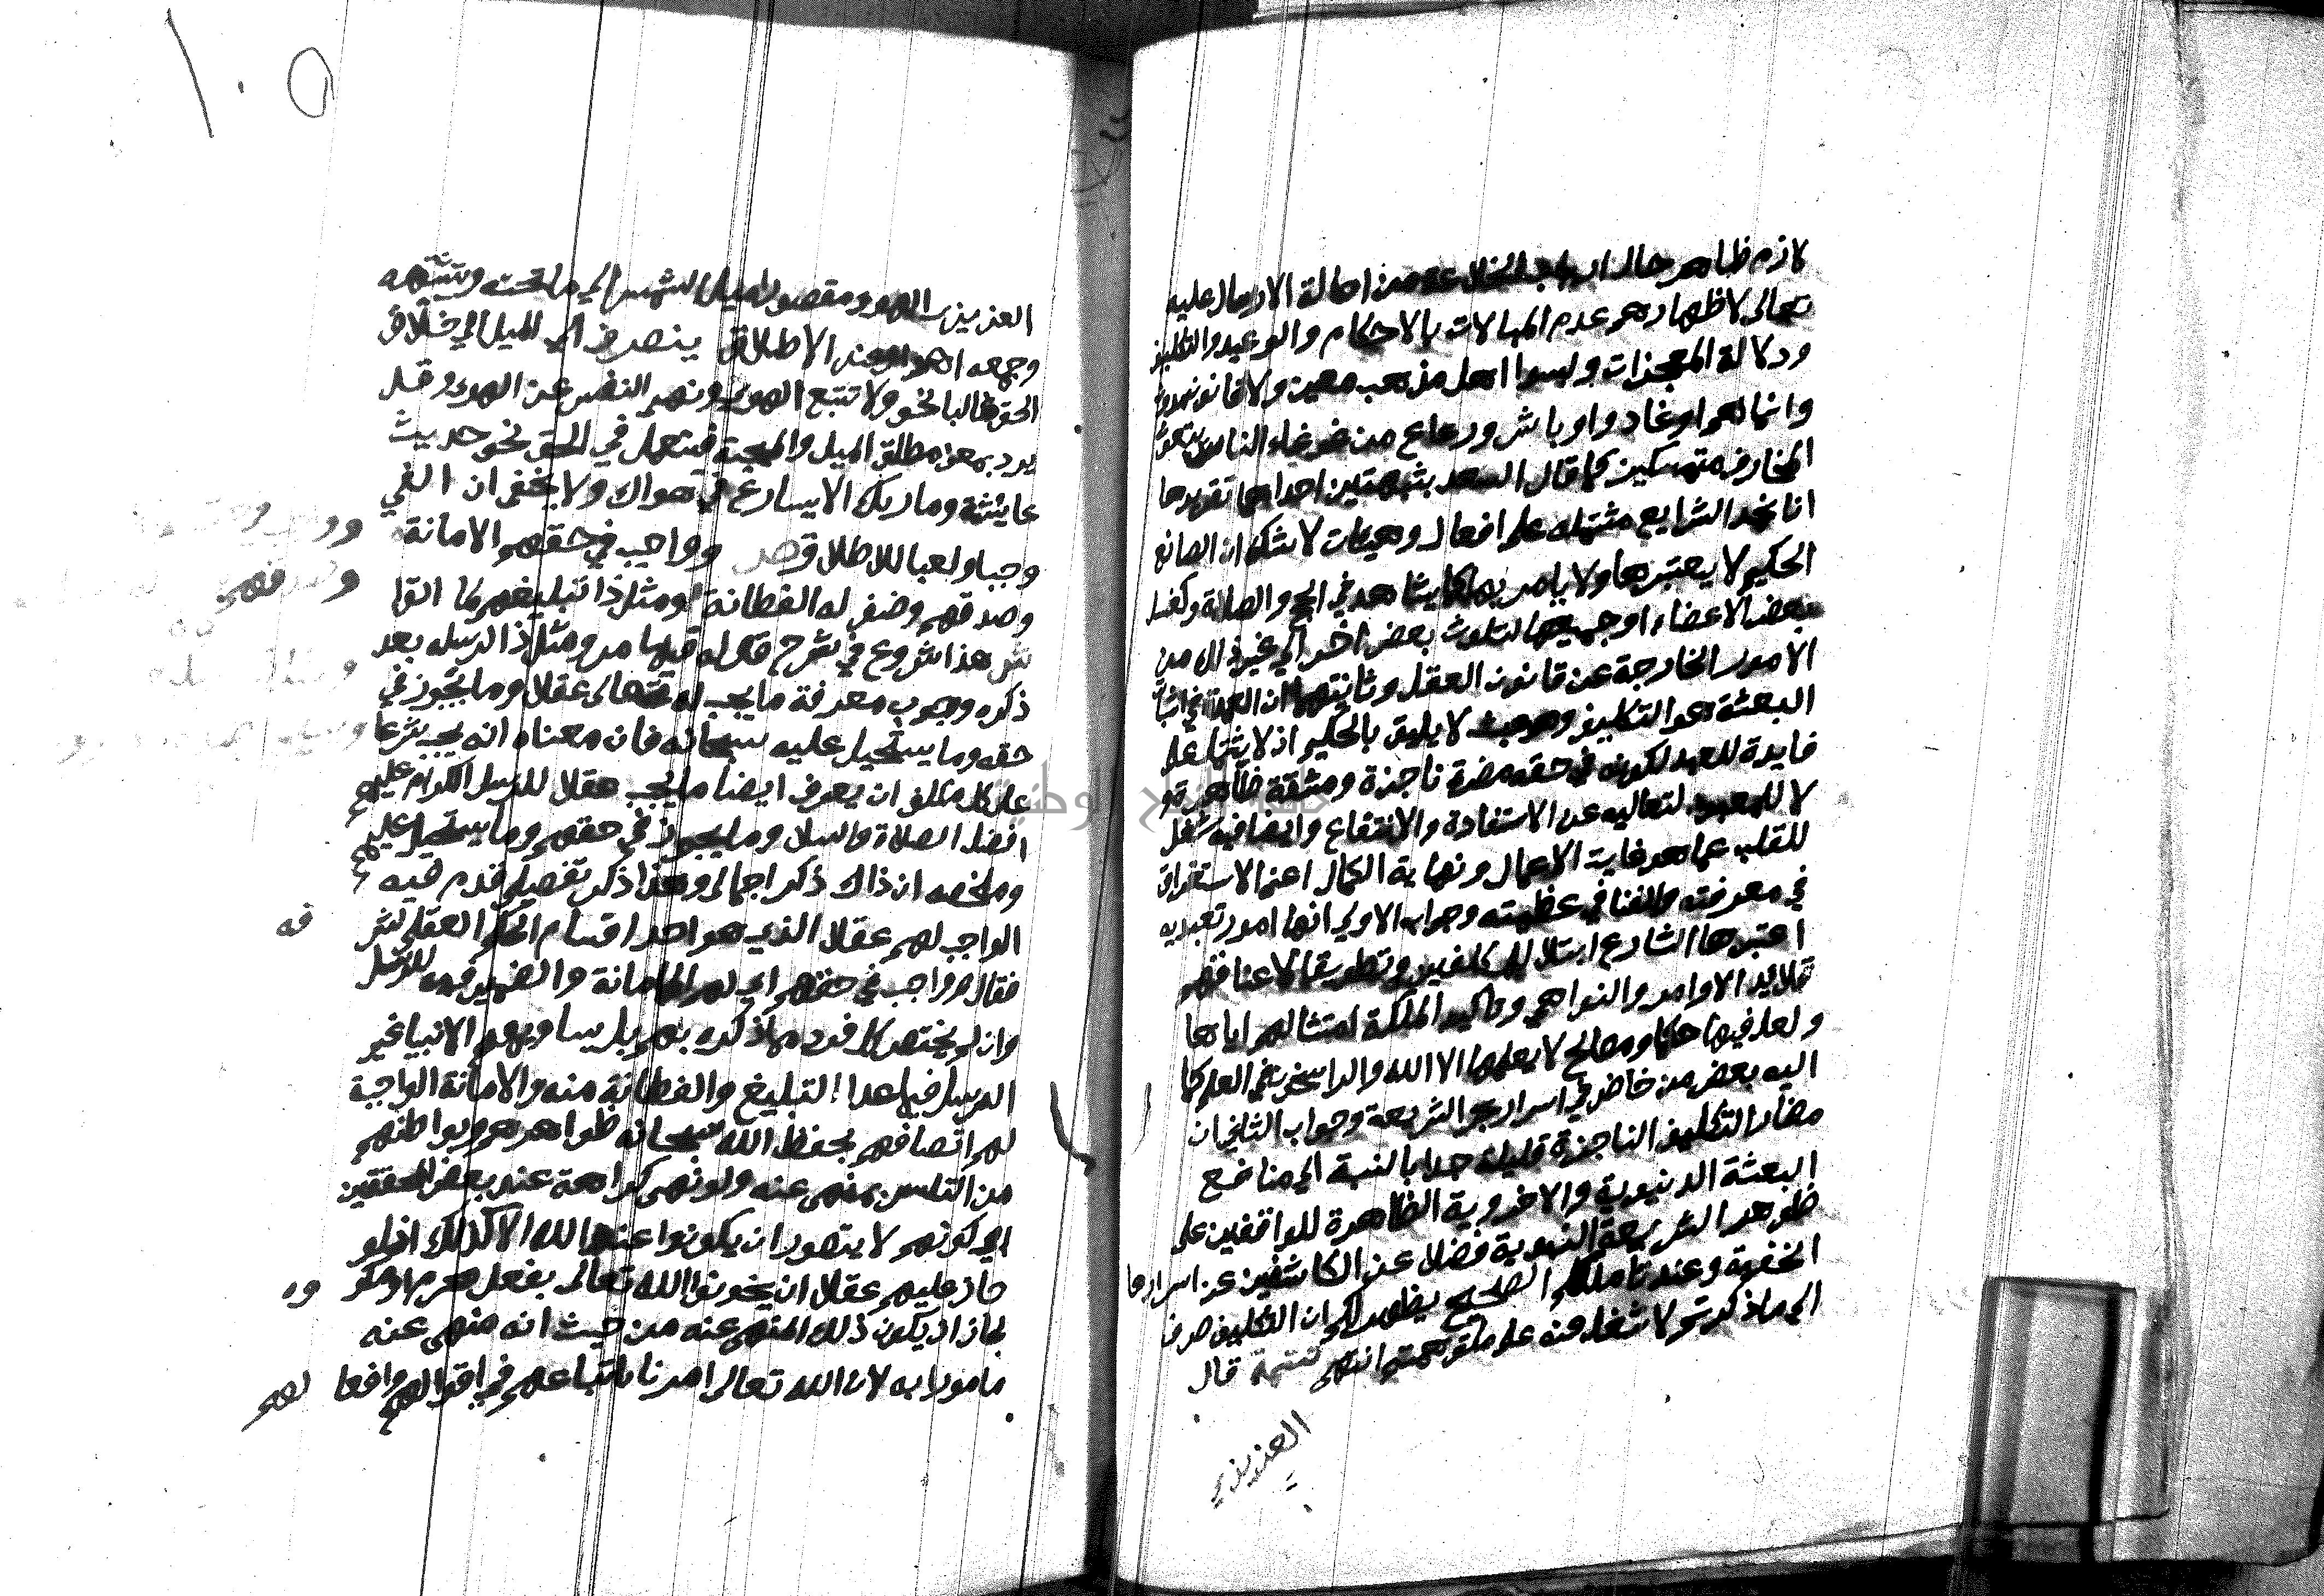 لازم ظاهر حال ارباب الخلاعة من احالة الارسال عليه
تعالى لاظهارهم عدم المبالات بالاحكام والوعيد والتكليف
ودلالة المعجزات وليسوا اهل مذهب معين ولا قانون
وانما هم اوغاد واوباش ورعاع من غوغاء الناس
المخارف متمسكين كما قال السعد بشبهتين احداهما تقريرها
انا نجد الشرايع مشتمله على افعال وهيئات لا شك ان الصانع
الحكيم لا يعتبرها ولا يامر بها كما يشاهد في الحج والصلاة وكغسل
بعض الاعضاء او جميعها لتلوث بعض اخر الى غير ذلك من
الامور الخارجة عن قانون العقل وثانيتهما ان العمدة في اثبات
البعثة هو التكليف وهو عبث لا يليق بالحكيم اذ لا يشتمل على
فايدة للعبد لكونه في حقه مضرة ناجزة ومشقة ظاهرة و
لا للمعبود لتعاليه عن الاستفادة والانتفاع وايضا فيه شغل
للقلب عما هو غاية الاعمال ونهاية الكمال اعني الاستغراق
في معرفته والفنا في عظمته وجواب الاولى انها امور تعبديه
اعتبرها الشارع ابتلا للمكلفين وتطويقا لاعناقهم
قلائد الاوامر والنواهي وتاكيد الملكة امتثالهم اياها
ولعل فيها حكما ومصالح لا يعلمها الا الله والراسخون في العلم كما
اليه بعض من خاض في اسرار بحر الشريعة وجواب الثاني ان
مضار التكليف الناجزة قليلة جدا بالنسبة الى منافع
البعثة الدنيوية والاخروية الظاهرة للواقفين على
ظوهر الشريعة النبوية فضلا عن الكاشفين عن اسرارها
الخفية وعند تاملكم الصحيح يظهر لكم ان التكليف صرف
الى ما ذكرتم لا شغل منه على ما توهمتم انتهى تتمة قال
العزيزي
١٠٥
العزيزي الهوى مقصورا ميل النفس الى ما تحبه وتشتهيه
وجمعه اهوا وعند الاطلاق ينصرف الى الميل الى خلاف
الحق غالبا نحو ولا تتبع الهوى ونهى النفس عن الهوى وقد
يرد بمعنى مطلق الميل والمحبة فيستعمل في الحق نحو حديث
عايشة وما ربك الا يسارع في هواك ولا يخفى ان الفي
وجبا ولعبا للاطلاق ص وواجب في حقهم الامانة
وصدقهم وضف له الفطانة ومثل ذا تبليغهم لما اتوا
ش هذا شروع في شرح قوله قبلها مر ومثل ذا لرسله بعد
ذكره وجوب معرفة ما يجب له تعالى عقلا وما يجوز في
حقه وما يستحيل عليه سبحانه فان معناه انه يجب شرعا
على كل مكلف ان يعرف ايضا ما يجب عقلا للرسل الكرام عليهم
افضل الصلاة والسلام وما يجوز في حقهم وما يستحيل عليهم
وملخصه ان ذاك ذكر اجمالى وهذا ذكر تفصيلي قدم فيه
الواجب لهم عقلا الذي هو احد اقسام الحكم العقلي
فقال ص وواجب في حقهم اي لهم الامانة والضمير فيه للرسل
وان لم يختص كل فرد مما ذكره بهم بل يساويهم الانبيا غير
المرسل فيما عدا التبليغ والفطانة منه والامانة الواجبة
لهم اتصافهم بحفظ الله سبحانه ظواهرهم وبواطنهم
من التلبس بمنهي عنه ولو نهى كراهة عند بعض المحققين
اي كونهم لا يتصور ان يكونوا عند الله الا كذلك اذ لو
جاز عليهم عقلا ان يخونوا الله تعالى بفعل محرم او مكروه
لجاز ان يكون ذلك المنهي عنه من حيث انه منهى عنه
مامورا به لان الله تعالى امرنا باتباعهم في اقوالهم وافعالهم